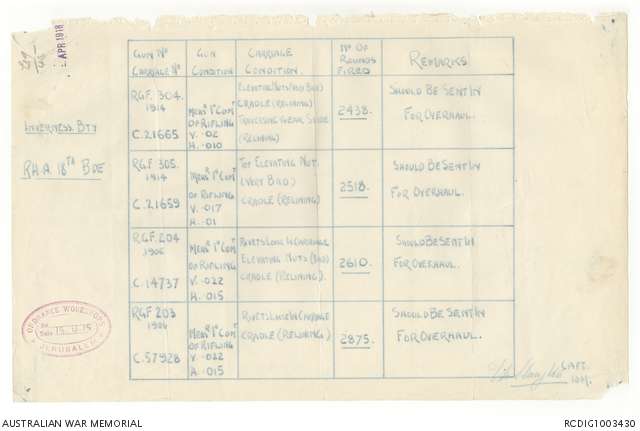 APR 1918
INVERNESS. BTY
R.H.A. 18TH BDE
GUN NO
CARRIAGE NO
GUN
CONDITION
CARRIAGE
CONDITION.
NO OF
ROUNDS
FIRED
REMARKS
RGF. 304.
1914
C.21665
MEAST 1" COMT
OF RIFLING
V. .02
H. .010
ELEVATING NUTS (VERY BAD)
CRADLE (RELINING)
TRAVERSING GEAR SLIDE
(RELINING)
2438.
SHOULD BE SENT IN
FOR OVERHAUL.
RGF 305.
1914
C.21659
MEAST 1" COMT
OF RIFLING
V. .017
H. .01
TOP ELEVATING NUT.
(VERY BAD)
CRADLE (RELINING)
2518.
SHOULD BE SENT IN
FOR OVERHAUL.
RGF. 204
1906
C.14737
MEAST 1" COMT
OF RIFLING
V. .022
H. .015
RIVETS LOOSE IN CARRIAGE
ELEVATING NUTS (BAD)
CRADLE (RELINING).
2610.
SHOULD BE SENT IN
FOR OVERHAUL.
RGF 203
1906
C.57928
MEAST 1" COMT
OF RIFLING
V. .022
H. .015
RIVETS LOOSE IN CARRIAGE
CRADLE (RELINING)
2875.
SHOULD BE SENT IN
FOR OVERHAUL.
ORDNANCE WORKSHOPS
JERUSALEM
CAPT.
IOM.
AUSTRALIAN WAR MEMORIAL
RCDIG1003430